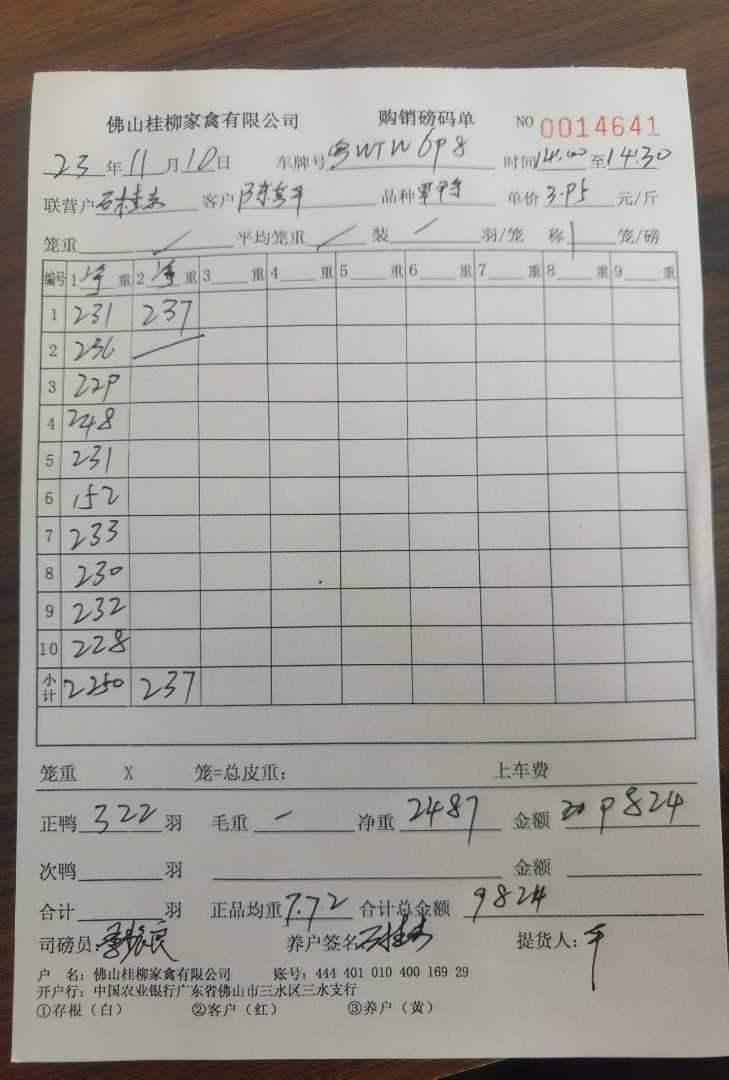 佛山桂柳家禽有限公司 购销磅码单 NO 0014641
23年11月10日 车牌号粤WTW6P8 时间14:00至14:30
联营户石桂 客户 品种 单价3.95元/斤
笼重 平均笼重 装 羽/笼 称 笼/磅
编号 1净重 2净重 3 重 4 重 5 重 6 重 7 重 8 重 9 重
1 231 237
2 236
3 229
4 248
5 231
6 152
7 233
8 230
9 232
10 228
小计 2250 237
笼重 X 笼=总皮重: 上车费
正鸭322羽 毛重 净重2487 金额 9824
次鸭 羽 金额
合计 羽 正品均重7.72 合计总金额 9824
司磅员: 养户签名石桂 提货人:平
户 名: 佛山桂柳家禽有限公司 账号: 444 401 010 400 169 29
开户行: 中国农业银行广东省佛山市三水区三水支行
①存根(白) ②客户(红) ③养户(黄)